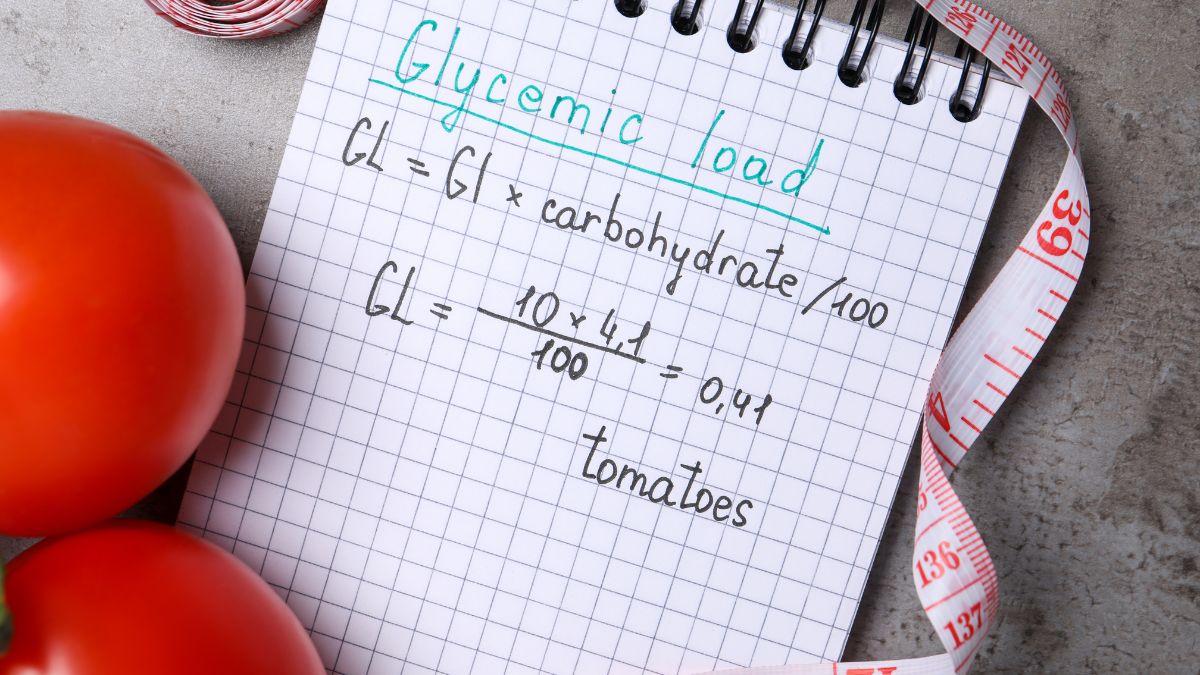 Glycemic load
GL = GI × carbohydrate /100
GL = 10 × 4,1
100
= 0,41
tomatoes
126
127
39
4
136
137